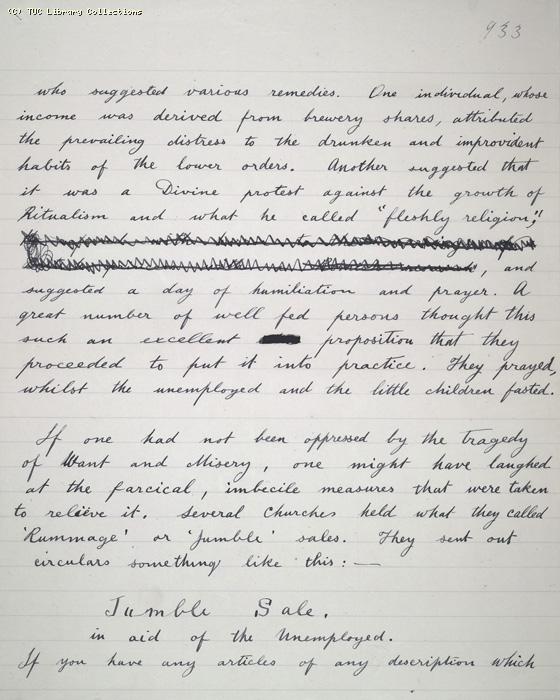 (C) TUC Library Collections
933
who suggested various remedies. One individual, whose
income was derived from brewery shares, attributed
the prevailing distress to the drunken and improvident
habits of the lower orders. Another suggested that
it was a Divine protest against the growth of
Ritualism and what he called "fleshly religion,"
, and
suggested a day of humiliation and prayer. A
great number of well fed persons thought this
such an excellent proposition that they
proceeded to put it into practice. They prayed,
whilst the unemployed and the little children fasted.
If one had not been oppressed by the tragedy
of Want and Misery, one might have laughed
at the farcical, imbecile measures that were taken
to relieve it. Several Churches held what they called
'Rummage' or 'Jumble' sales. They sent out
circulars something like this: —
Jumble Sale.
in aid of the Unemployed.
If you have any articles of any description which